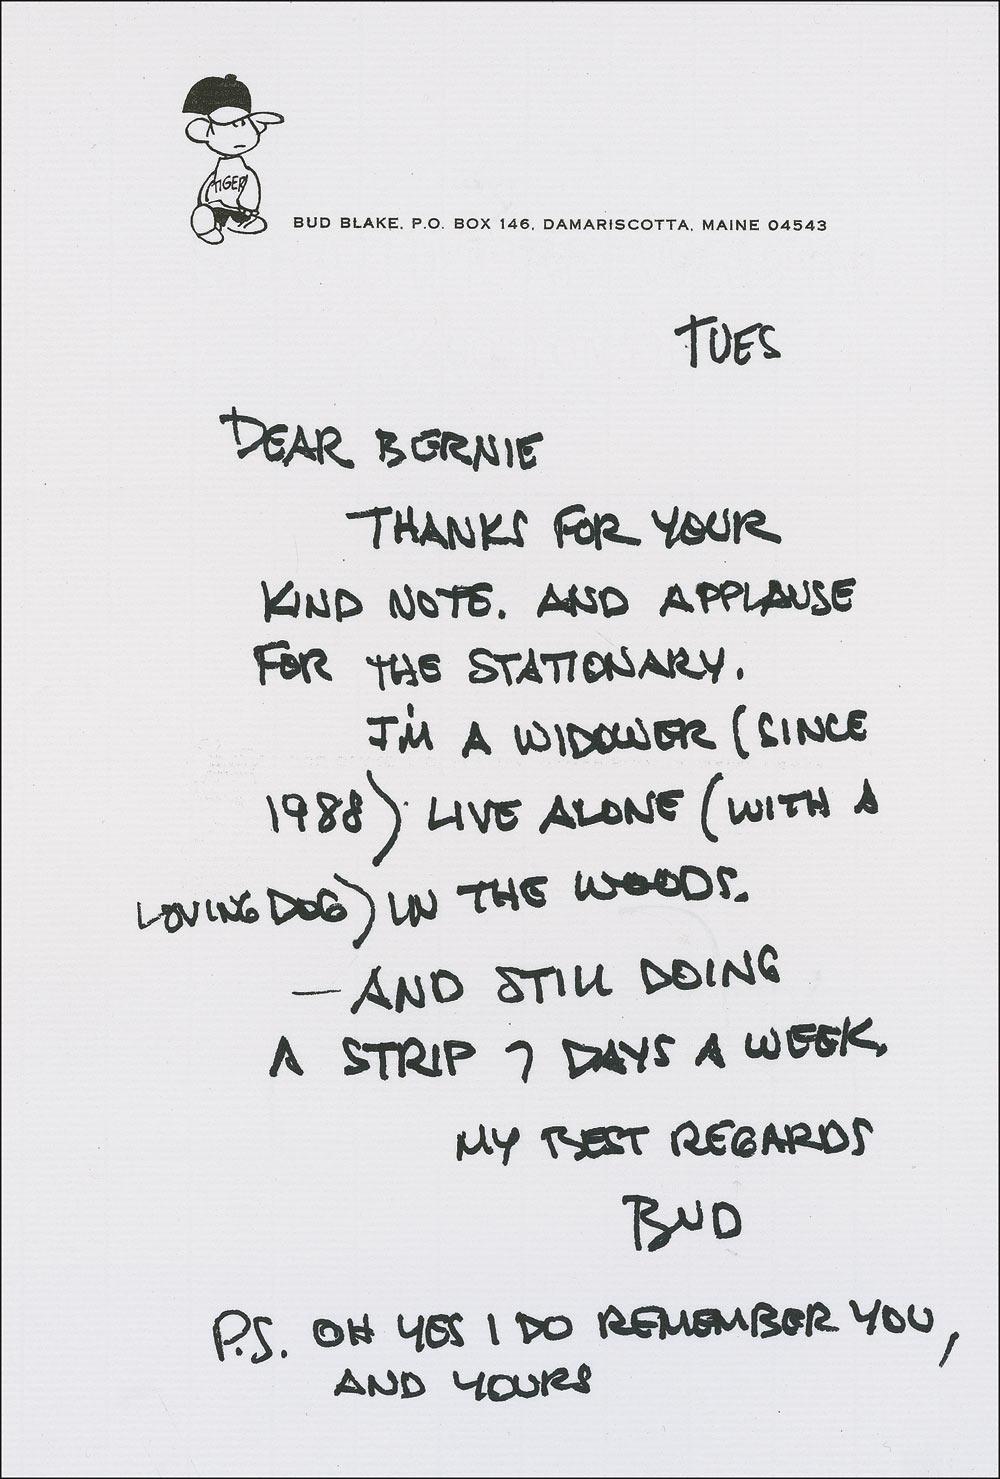 TIGER
BUD BLAKE, P.O. BOX 146, DAMARISCOTTA, MAINE 04543
TUES
DEAR BERNIE
THANKS FOR YOUR
KIND NOTE. AND APPLAUSE
FOR THE STATIONARY.
I'M A WIDOWER (SINCE
1988) LIVE ALONE (WITH A
LOVING DOG) IN THE WOODS.
— AND STILL DOING
A STRIP 7 DAYS A WEEK,
MY BEST REGARDS
BUD
P.S. OH YES I DO REMEMBER YOU,
AND YOURS